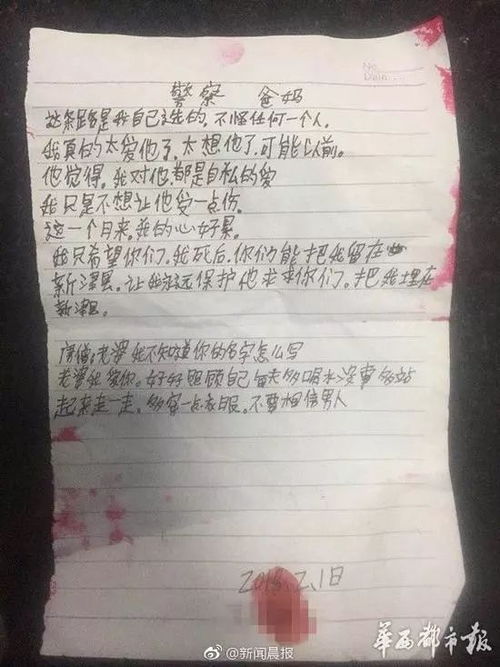 No.
Date.
警察 爸妈
这条路是我自己选的.不怪任何一个人.
我真的太爱他了.太想他了.可能以前。
他觉得.我对他.都是自私的爱
我只是不想让他受一点伤.
这一个月来.我的心好累.
我只希望你们.我死后.你们能把我留在
新津县.让我永远保护他求求你们.把我埋在
新津县。
老婆我不知道你的名字怎么写
老婆我爱你.好好照顾自己每天多喝水没事多站
起来走一走.多穿一点衣服.不要相信男人
2018.2.1日
@新闻晨报
华西都市报